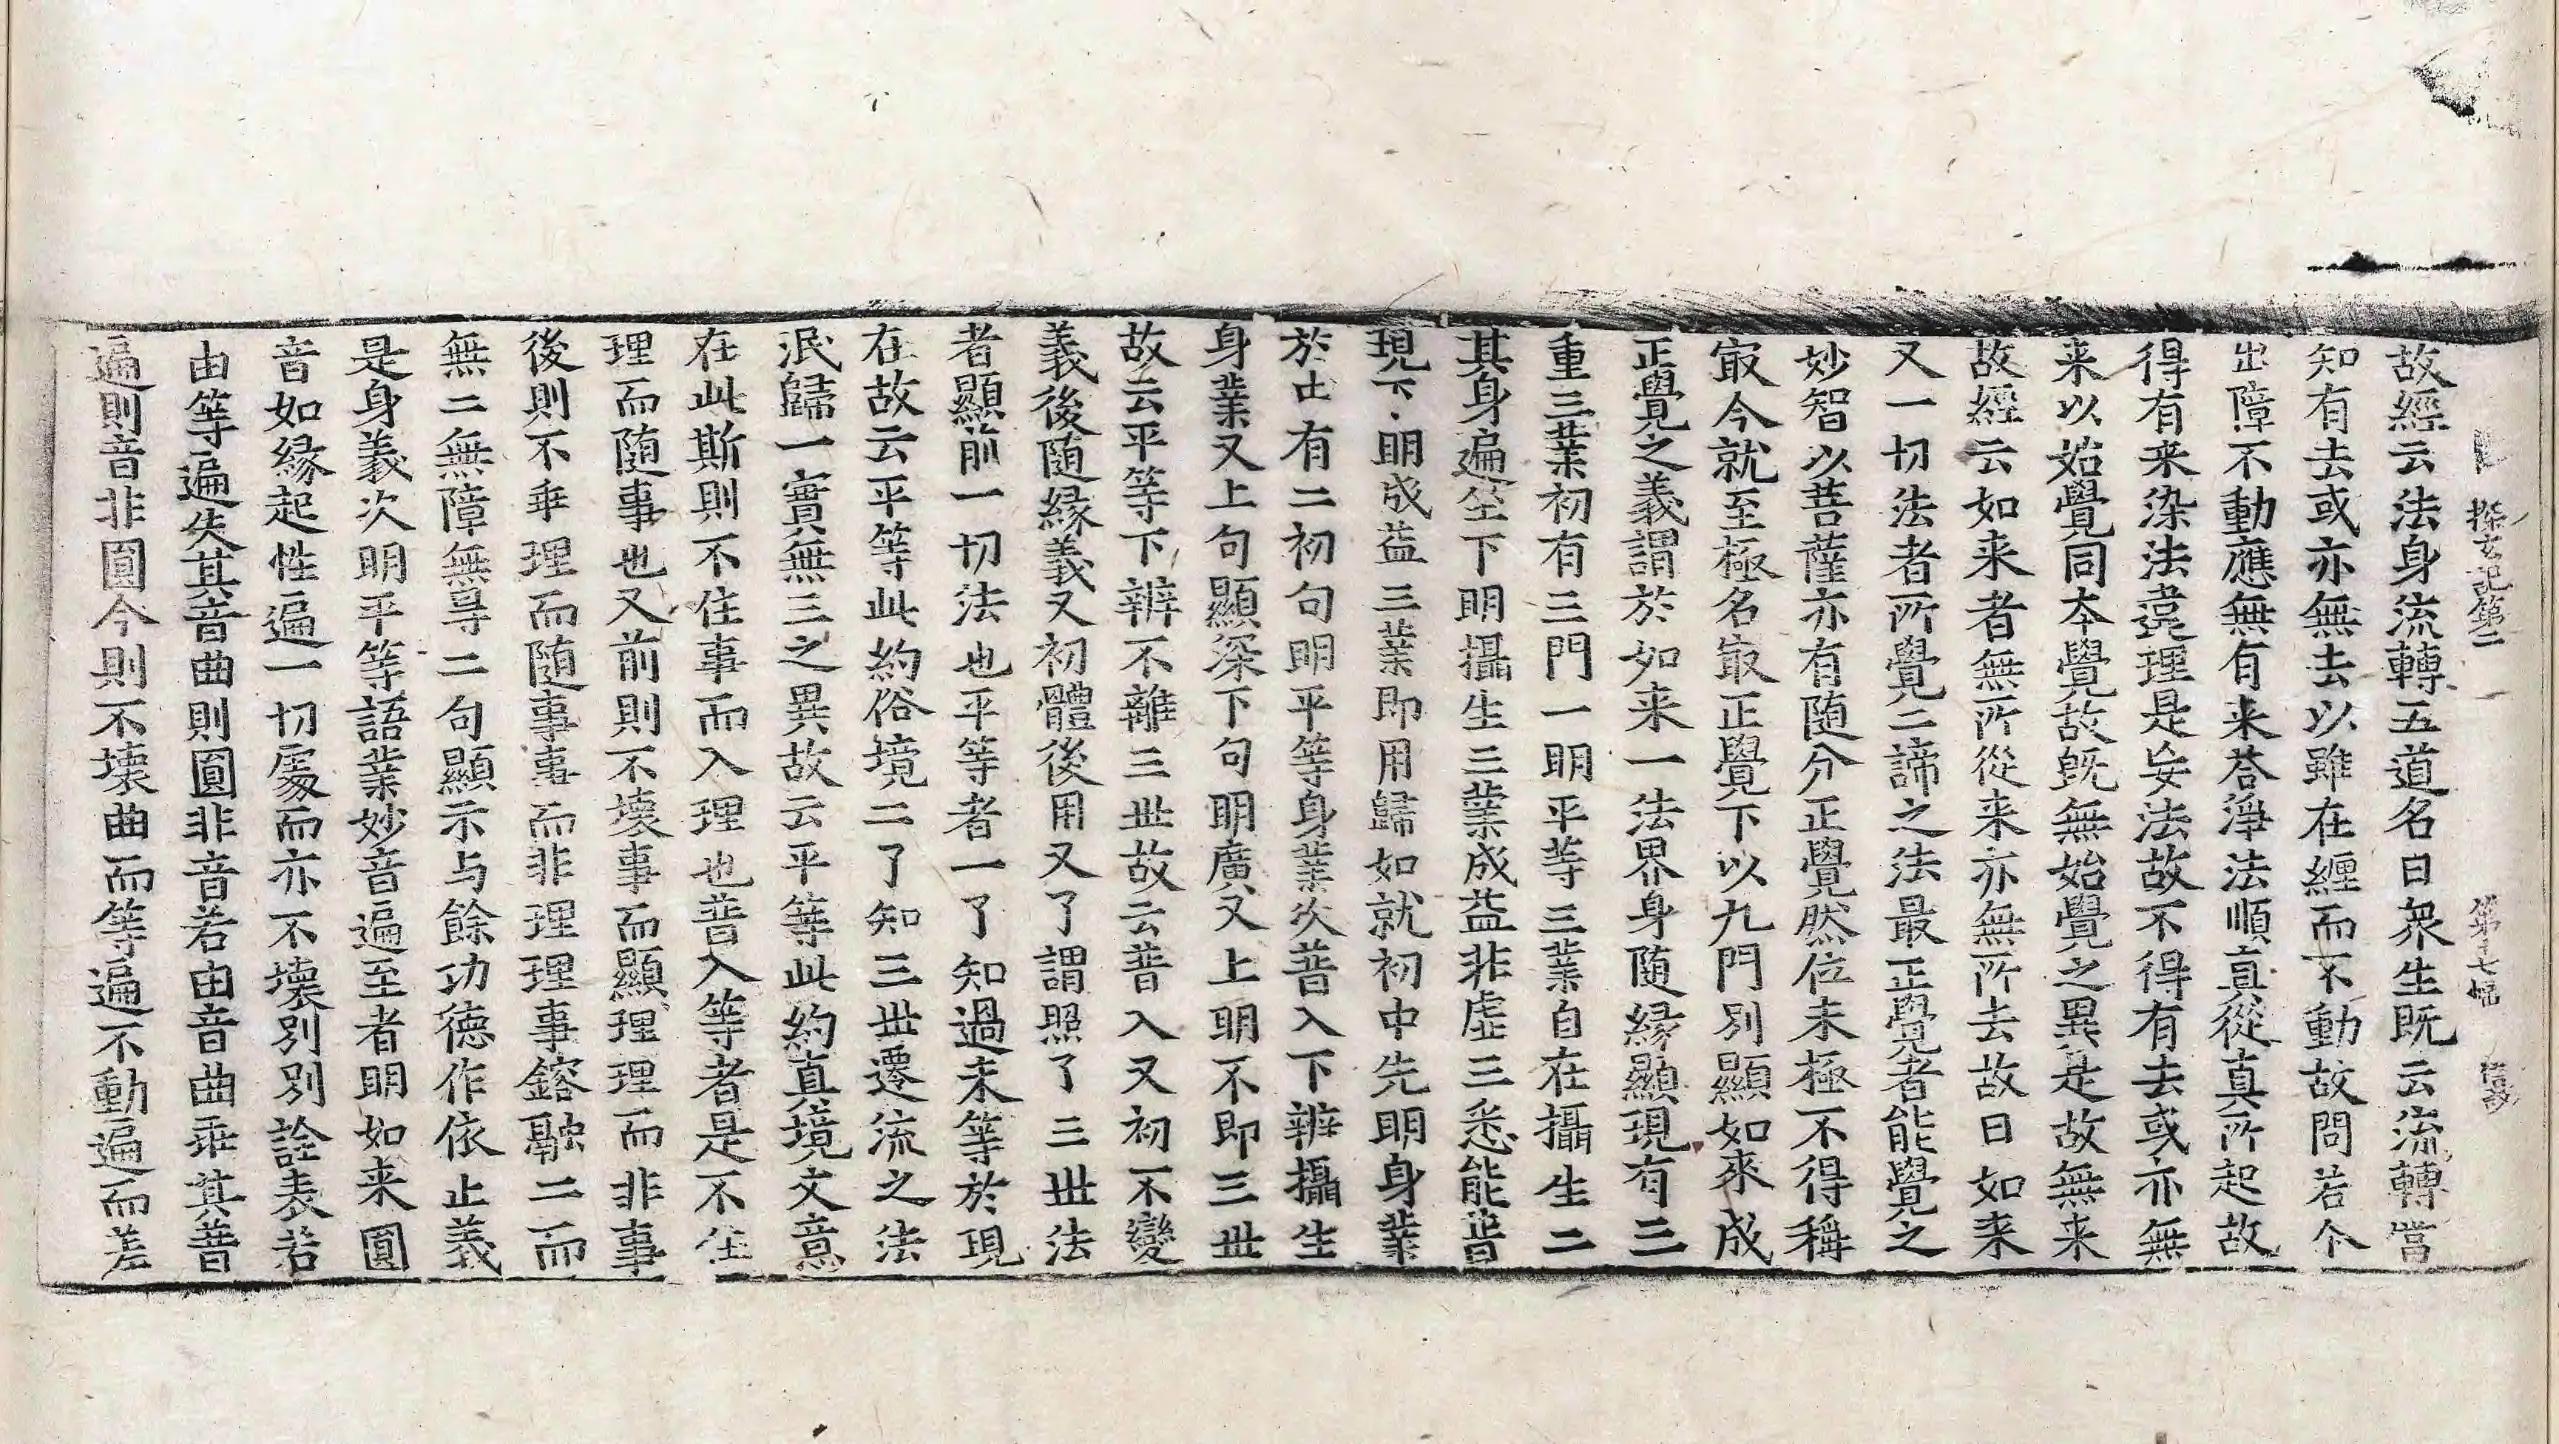 探玄記第二 第十七幅
故經云法身流轉五道名曰衆生既云流轉當
知有去或亦無去以雖在纏而不動故問若尒
出障不動應無有来荅淨法順真從真所起故
得有来染法違理是妄法故不得有去或亦無
来以始覺同本覺故既無始覺之異是故無来
故經云如来者無所從来亦無所去故曰如来
又一切法者所覺二諦之法最正覺者能覺之
妙智以菩薩亦有随分正覺然位未極不得稱
㝡今就至極名㝡正覺下以九門別顯如來成
正覺之義謂於如来一法界身随緣顯現有三
重三業初有三門一明平等三業自在攝生二
其身遍坐下明攝生三業成益非虛三悉能普
現下明成益三業即用歸如就初中先明身業
於中有二初句明平等身業次普入下辨攝生
身業又上句顯深下句明廣又上明不即三世
故云平等下辨不離三世故云普入又初不變
義後随緣義又初體後用又了謂照了三世法
者顯前一切法也平等者一了知過未等於現
在故云平等此約俗境二了知三世遷流之法
泯歸一實無三之異故云平等此約真境文意
在此斯則不住事而入理也普入等者是不住
理而随事也又前則不壊事而顯理理而非事
後則不乖理而随事事而非理理事鎔融二而
無二無障無㝵二句顯示与餘功德作依止義
是身義次明平等語業妙音遍至者明如来圓
音如緣起性遍一切處而亦不壊別別詮表若
由等遍失其音曲則圓非音若由音曲乖其普
遍則音非圓今則不壊曲而等遍不動遍而差